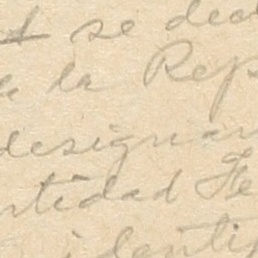 se dec
la Rep
designan
ntidad Fe
identi